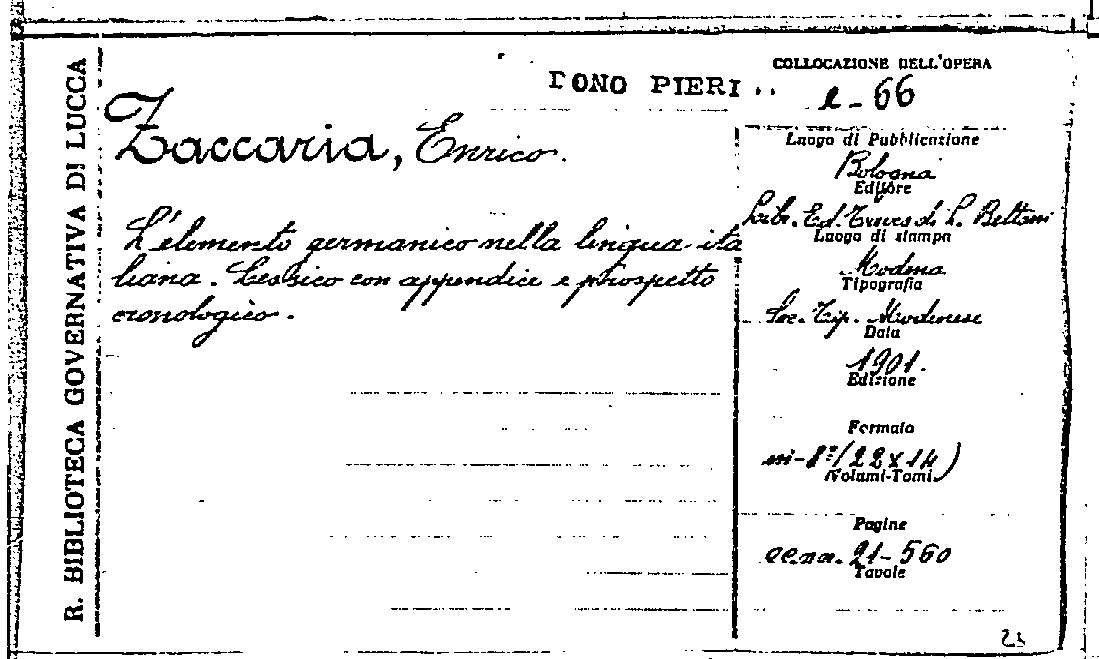 R. BIBLIOTECA GOVERNATIVA DI LUCCA
DONO PIERI
COLLOCAZIONE DELL'OPERA
e-66
Zaccaria, Enrico.
L'elemento germanico nella lingua ita
liana. Lessico con appendice e prospetto
cronologico.
Luogo di Pubblicazione
Bologna
Editore
Libr. Ed. Treves di L. Beltrami
Luogo di stampa
Modena
Tipografia
Soc. Tip. Modenese
Data
1901.
Edizione
Formato
in-8º (22 x 14)
(Volumi-Tomi)
Pagine
21-560
Tavole